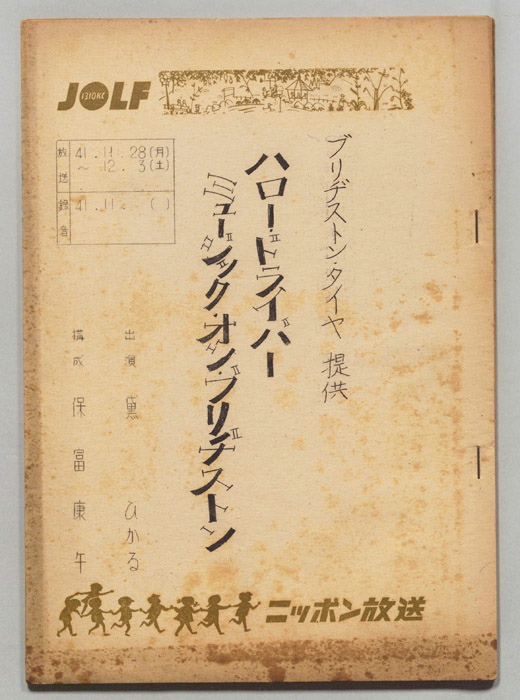 JOLF
1310KC
ブリヂストン・タイヤ 提供
ハロー・ドライバー
ミュージック・オン・ブリヂストン
放送 41.11.28(月)
〜12.3(土)
録音 41.11. . ( )
出演 黛 ひかる
構成 保富康午
ニッポン放送